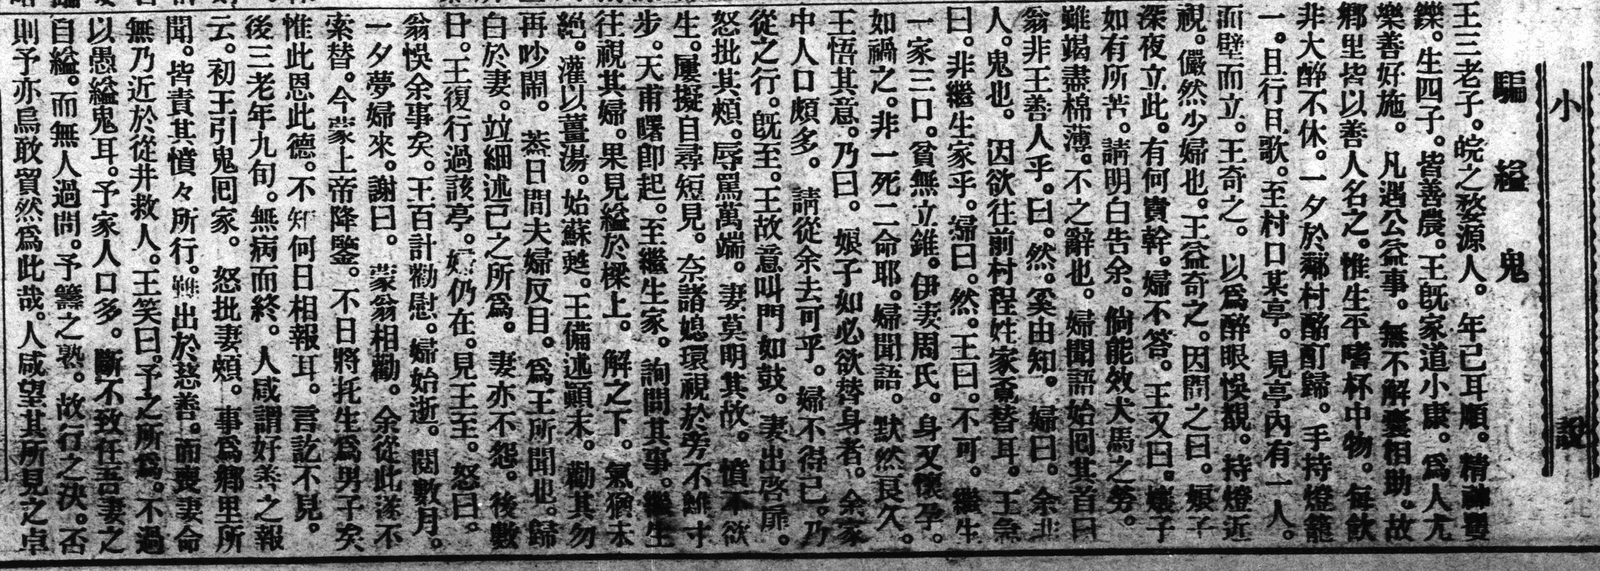 小說
騙縊鬼
王三老子。皖之婺源人。年已耳順。精神矍
鑠。生四子。皆善農。王旣家道小康。爲人尤
樂善好施。凡遇公益事。無不解囊相助。故
鄉里皆以善人名之。惟生平嗜杯中物。每飮
非大醉不休。一夕於鄰村酩酊歸。手持燈籠
一。且行且歌。至村口某亭。見亭內有一人。
面壁而立。王奇之。以爲醉眼悞覩。持燈近
視。儼然少婦也。王益奇之。因問之曰。娘子
深夜立此。有何貴幹。婦不答。王又曰。娘子
如有所苦。請明白告余。倘能效犬馬之勞。
雖竭盡棉薄。不之辭也。婦聞語始囘其首曰
翁非王善人乎。曰。然。奚由知。婦曰。余非
人。鬼也。因欲往前村程姓家覔替耳。王急
曰。非繼生家乎。婦曰。然。王曰。不可。繼生
一家三口。貧無立錐。伊妻周氏。身又懷孕。
如禍之。非一死二命耶。婦聞語。默然良久。
王悟其意。乃曰。娘子如必欲替身者。余家
中人口頗多。請從余去可乎。婦不得已。乃
從之行。旣至。王故意叫門如鼓。妻出啓扉。
怒批其頰。辱罵萬端。妻莫明其故。憤不欲
生。屢擬自尋短見。奈諸媳環視於旁不離寸
步。天甫曙卽起。至繼生家。詢問其事。繼生
往視其婦。果見縊於樑上。解之下。氣猶未
絕。灌以薑湯。始蘇甦。王備述顚末。勸其勿
再吵鬧。蓋日間夫婦反目。爲王所聞也。歸
白於妻。竝細述已之所爲。妻亦不怨。後數
日。王復行過該亭。婦仍在。見王至。怒曰。
翁悞余事矣。王百計勸慰。婦始逝。閱數月。
一夕夢婦來。謝曰。蒙翁相勸。余從此遂不
索替。今蒙上帝降鑒。不日將托生爲男子矣
惟此恩此德。不知何日相報耳。言訖不見。
後三老年九旬。無病而終。人咸謂好善之報
云。初王引鬼囘家。怒批妻頰。事爲鄉里所
聞。皆責其憒々所行。雖出於慈善。而喪妻命
無乃近於從井救人。王笑曰。予之所爲。不過
以愚縊鬼耳。予家人口多。斷不致任吾妻之
自縊。而無人過問。予籌之熟。故行之決。否
則予亦烏敢貿然爲此哉。人咸望其所見之卓